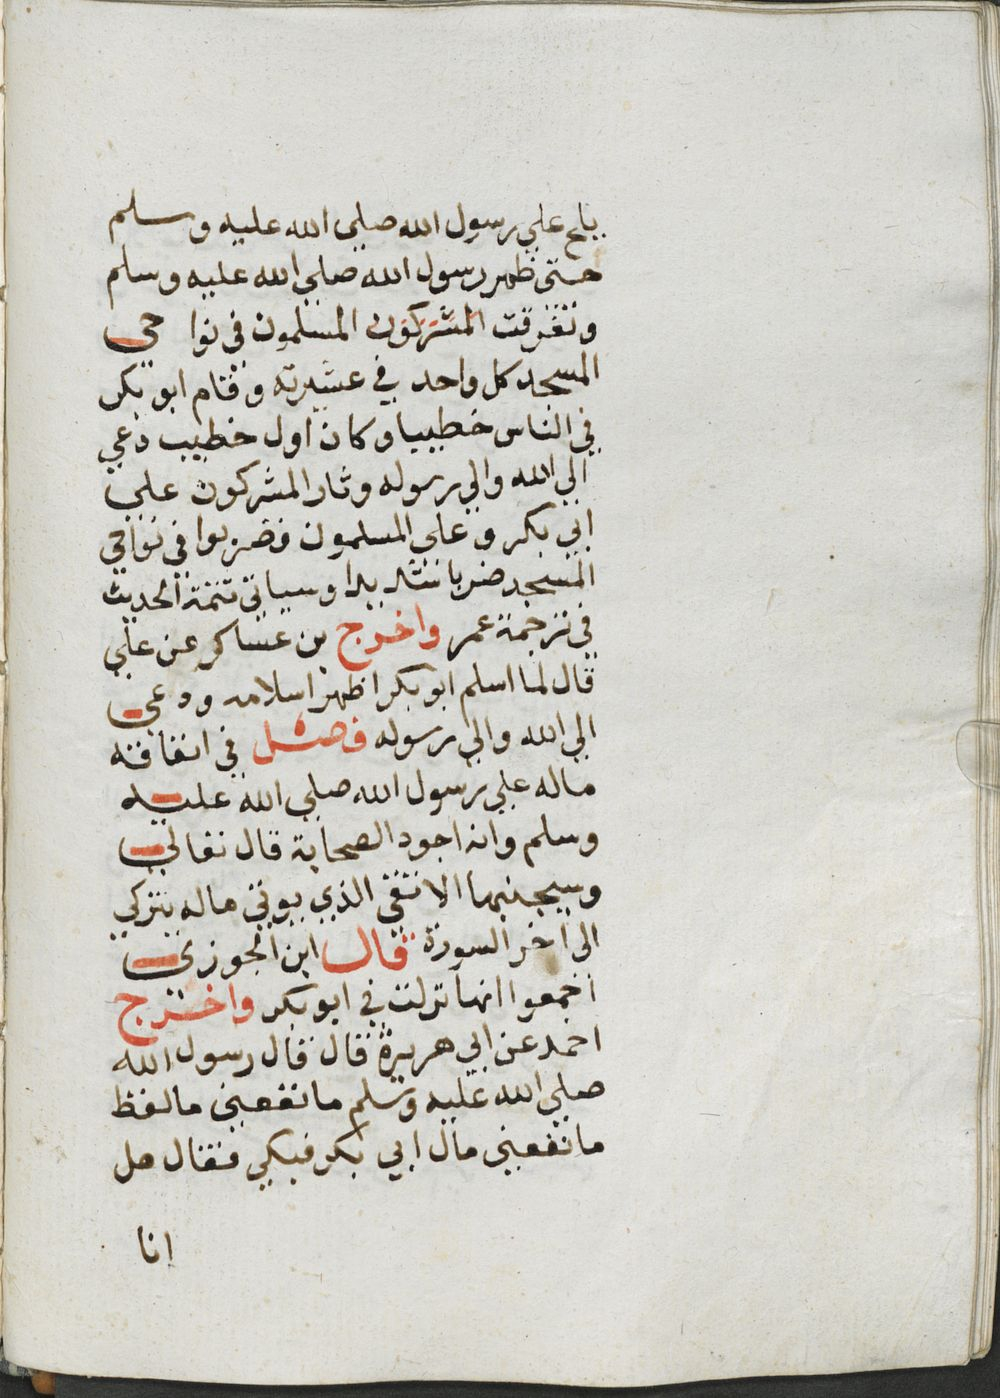 يلح علي رسول الله صلي الله عليه وسلم
حتى ظهر رسول الله صلي الله عليه وسلم
وتفرقت المشركون المسلمون في نواحي
المسجد كل واحد في عشيرته وقام ابو بكر
في الناس خطيبا وكان اول خطيب دعي
الي الله والي رسوله وثار المشركون علي
ابي بكر وعلي المسلمون فضربوا في نواحي
المسجد ضربا شديدا وسياتي تتمة الحديث
في ترجمة عمر واخرج بن عساكر عن علي
قال لما اسلم ابو بكر اظهر اسلامه ودعي
الي الله والي رسوله فصل في انفاقه
ماله علي رسول الله صلي الله عليه
وسلم وانه اجود الصحابة قال تعالي
وسيجنبها الاتقي الذي يوتي ماله يتزكي
الى اخر السورة قال ابن الجوزي
اجمعوا انها نزلت في ابو بكر واخرج
احمد عن ابي هريرة قال قال رسول الله
صلي الله عليه وسلم ما نفعني مال قط
ما نفعني مال ابي بكر فبكي فقال هل
انا